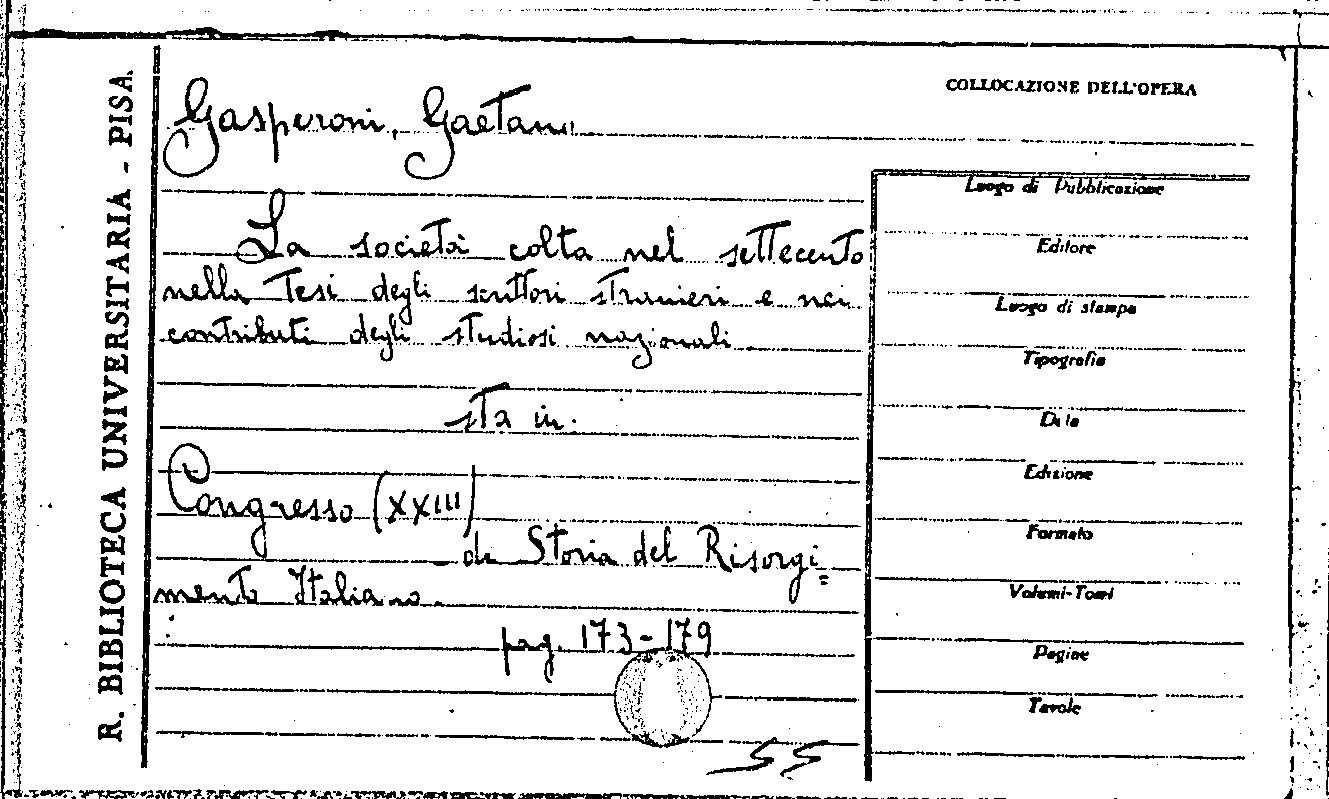 R. BIBLIOTECA UNIVERSITARIA - PISA.
COLLOCAZIONE DELL'OPERA
Gasperoni, Gaetano
La società colta nel settecento
nella tesi degli scrittori stranieri e nei
contributi degli studiosi nazionali.
sta in:
Congresso (XXIII)
di Storia del Risorgi=
mento Italiano.
pag. 173-179
55
Luogo di Pubblicazione
Editore
Luogo di stampa
Tipografia
Data
Edizione
Formato
Volumi-Tomi
Pagine
Tavole